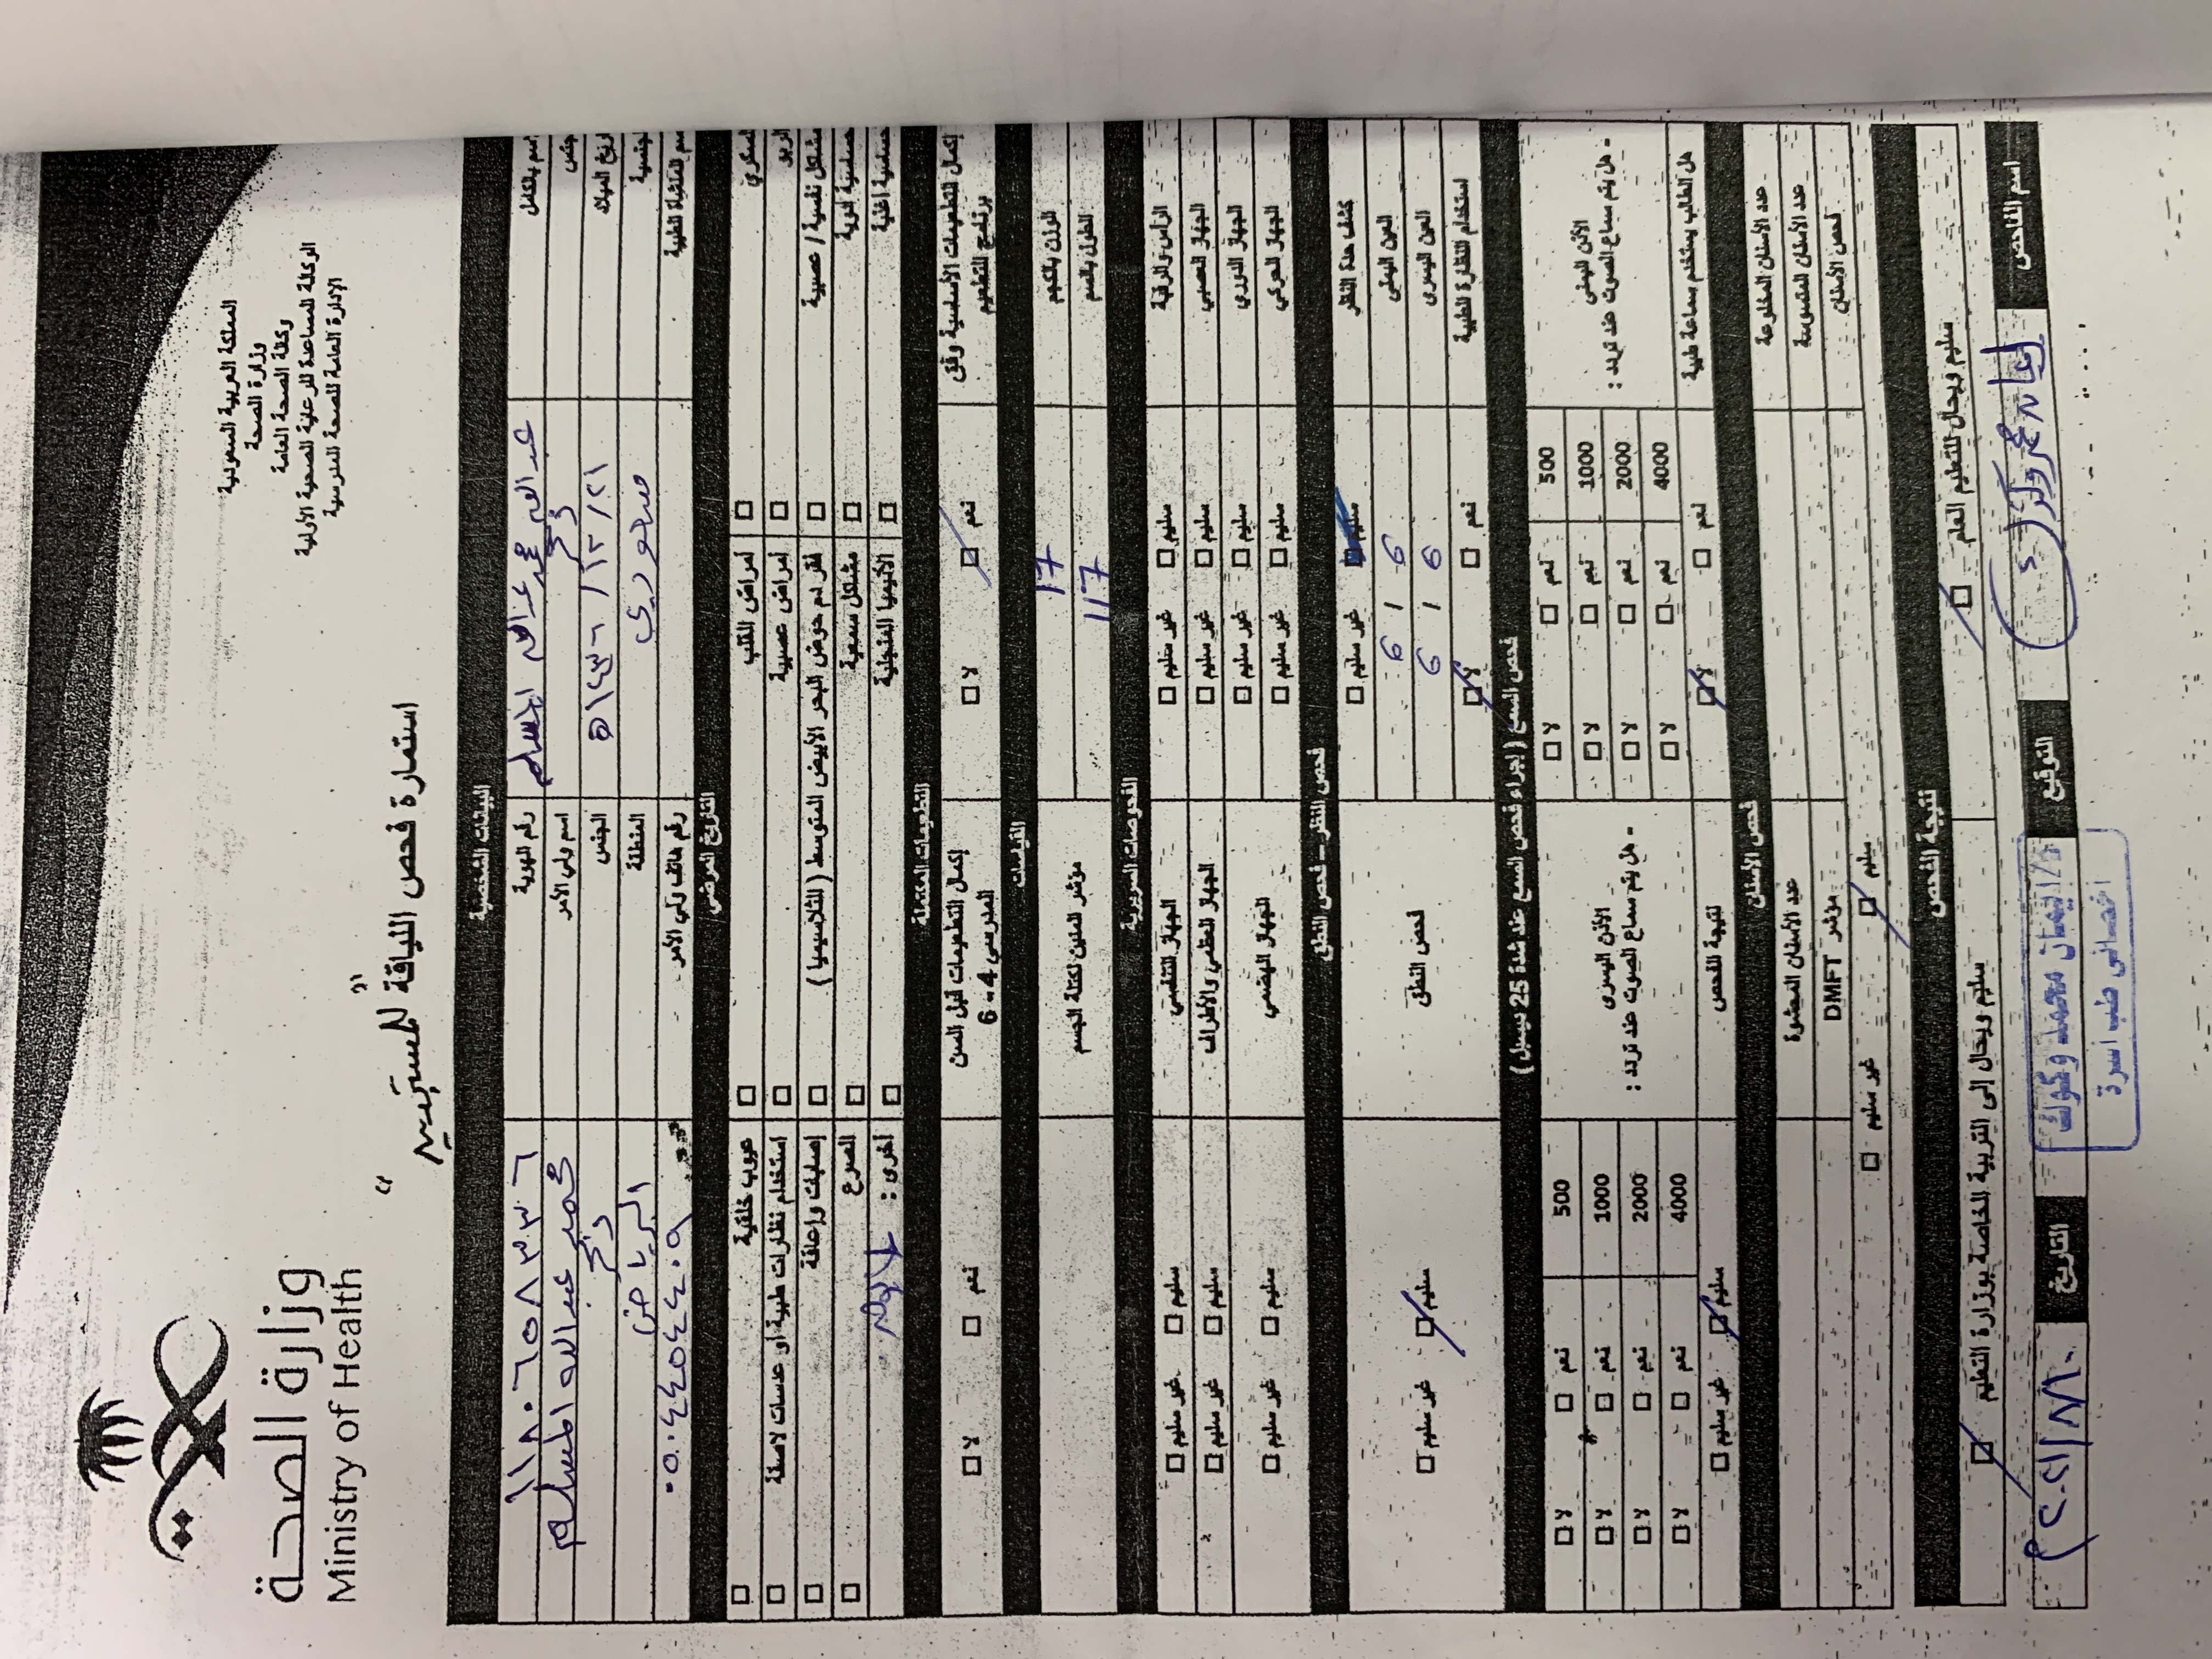 المملكة العربية السعودية
وزارة الصحة
وكالة الصحة العامة
الوكالة المساعدة للرعاية الصحية الأولية
الإدارة العامة للصحة المدرسية
وزارة الصحة
Ministry of Health
استمارة فحص اللياقة للمستجدين
البيانات الشخصية
اسم بالكامل رقم الهوية
جنس ذكر اسم ولي الأمر محمد عبدالله المسلم
اريخ الميلاد ١٤٣٦/١٢/٢١ه الجنس ذكر
جنسية سعودي المنطقة الرياض
سم المنشأة الطبية رقم هاتف ولي الأمر ٠٥٠٤٤٥٤٤٠٩
التاريخ المرضي
لسكري □ أمراض القلب □ عيوب خلقية □
الربو □ أمراض عصبية □ استخدام نظارات طبية أو عدسات لاصقة □
مشاكل نفسية / عصبية □ فقر دم حوض البحر الأبيض المتوسط (الثلاسيميا) □ إصابات وإعاقة □
حساسية أدوية □ مشاكل سمعية □ الصرع □
حساسية أغذية □ الأنيميا المنجلية □ أخرى : لا يوجد
التطعيمات المكتملة
إكمال التطعيمات الأساسية وفق برنامج التطعيم □ نعم □ لا إكمال التطعيمات قبل السن المدرسي 4-6 □ نعم □ لا
القياسات
الوزن بالكجم 17 مؤشر السمن لكتلة الجسم
الطول بالسم 117
الفحوصات السريرية
الرأس والرقبة □ سليم □ غير سليم الجهاز التنفسي □ سليم □ غير سليم
الجهاز العصبي □ سليم □ غير سليم الجهاز العظمي والأطراف □ سليم □ غير سليم
الجهاز الدوري □ سليم □ غير سليم الجهاز الهضمي □ سليم □ غير سليم
الجهاز الحركي □ سليم □ غير سليم
فحص النظر - فحص النطق
كشف حدة النظر □ سليم □ غير سليم فحص النطق □ سليم □ غير سليم
العين اليمنى 6 / 6
العين اليسرى 6 / 6
استخدام النظارة الطبية □ نعم □ لا
فحص السمع (إجراء فحص السمع عند شدة 25 ديسيبل)
الأذن اليمنى الأذن اليسرى
- هل يتم سماع الصوت عند تردد : - هل يتم سماع الصوت عند تردد :
500 □ نعم □ لا 500 □ نعم □ لا
1000 □ نعم □ لا 1000 □ نعم □ لا
2000 □ نعم □ لا 2000 □ نعم □ لا
4000 □ نعم □ لا 4000 □ نعم □ لا
هل الطالب يستخدم سماعة طبية □ نعم □ لا نتيجة الفحص □ سليم □ غير سليم
فحص الأسنان
عدد الأسنان المخلوعة عدد الأسنان المحشوة
عدد الأسنان المتسوسة مؤشر DMFT
فحص الأسنان □ سليم □ غير سليم
نتيجة الفحص
سليم ويحال للتعليم العام □ سليم ويحال إلى التربية الخاصة بوزارة التعليم □
اسم الفاحص التوقيع التاريخ
د/ إيمان محمد وكوك
اخصائي طب اسرة